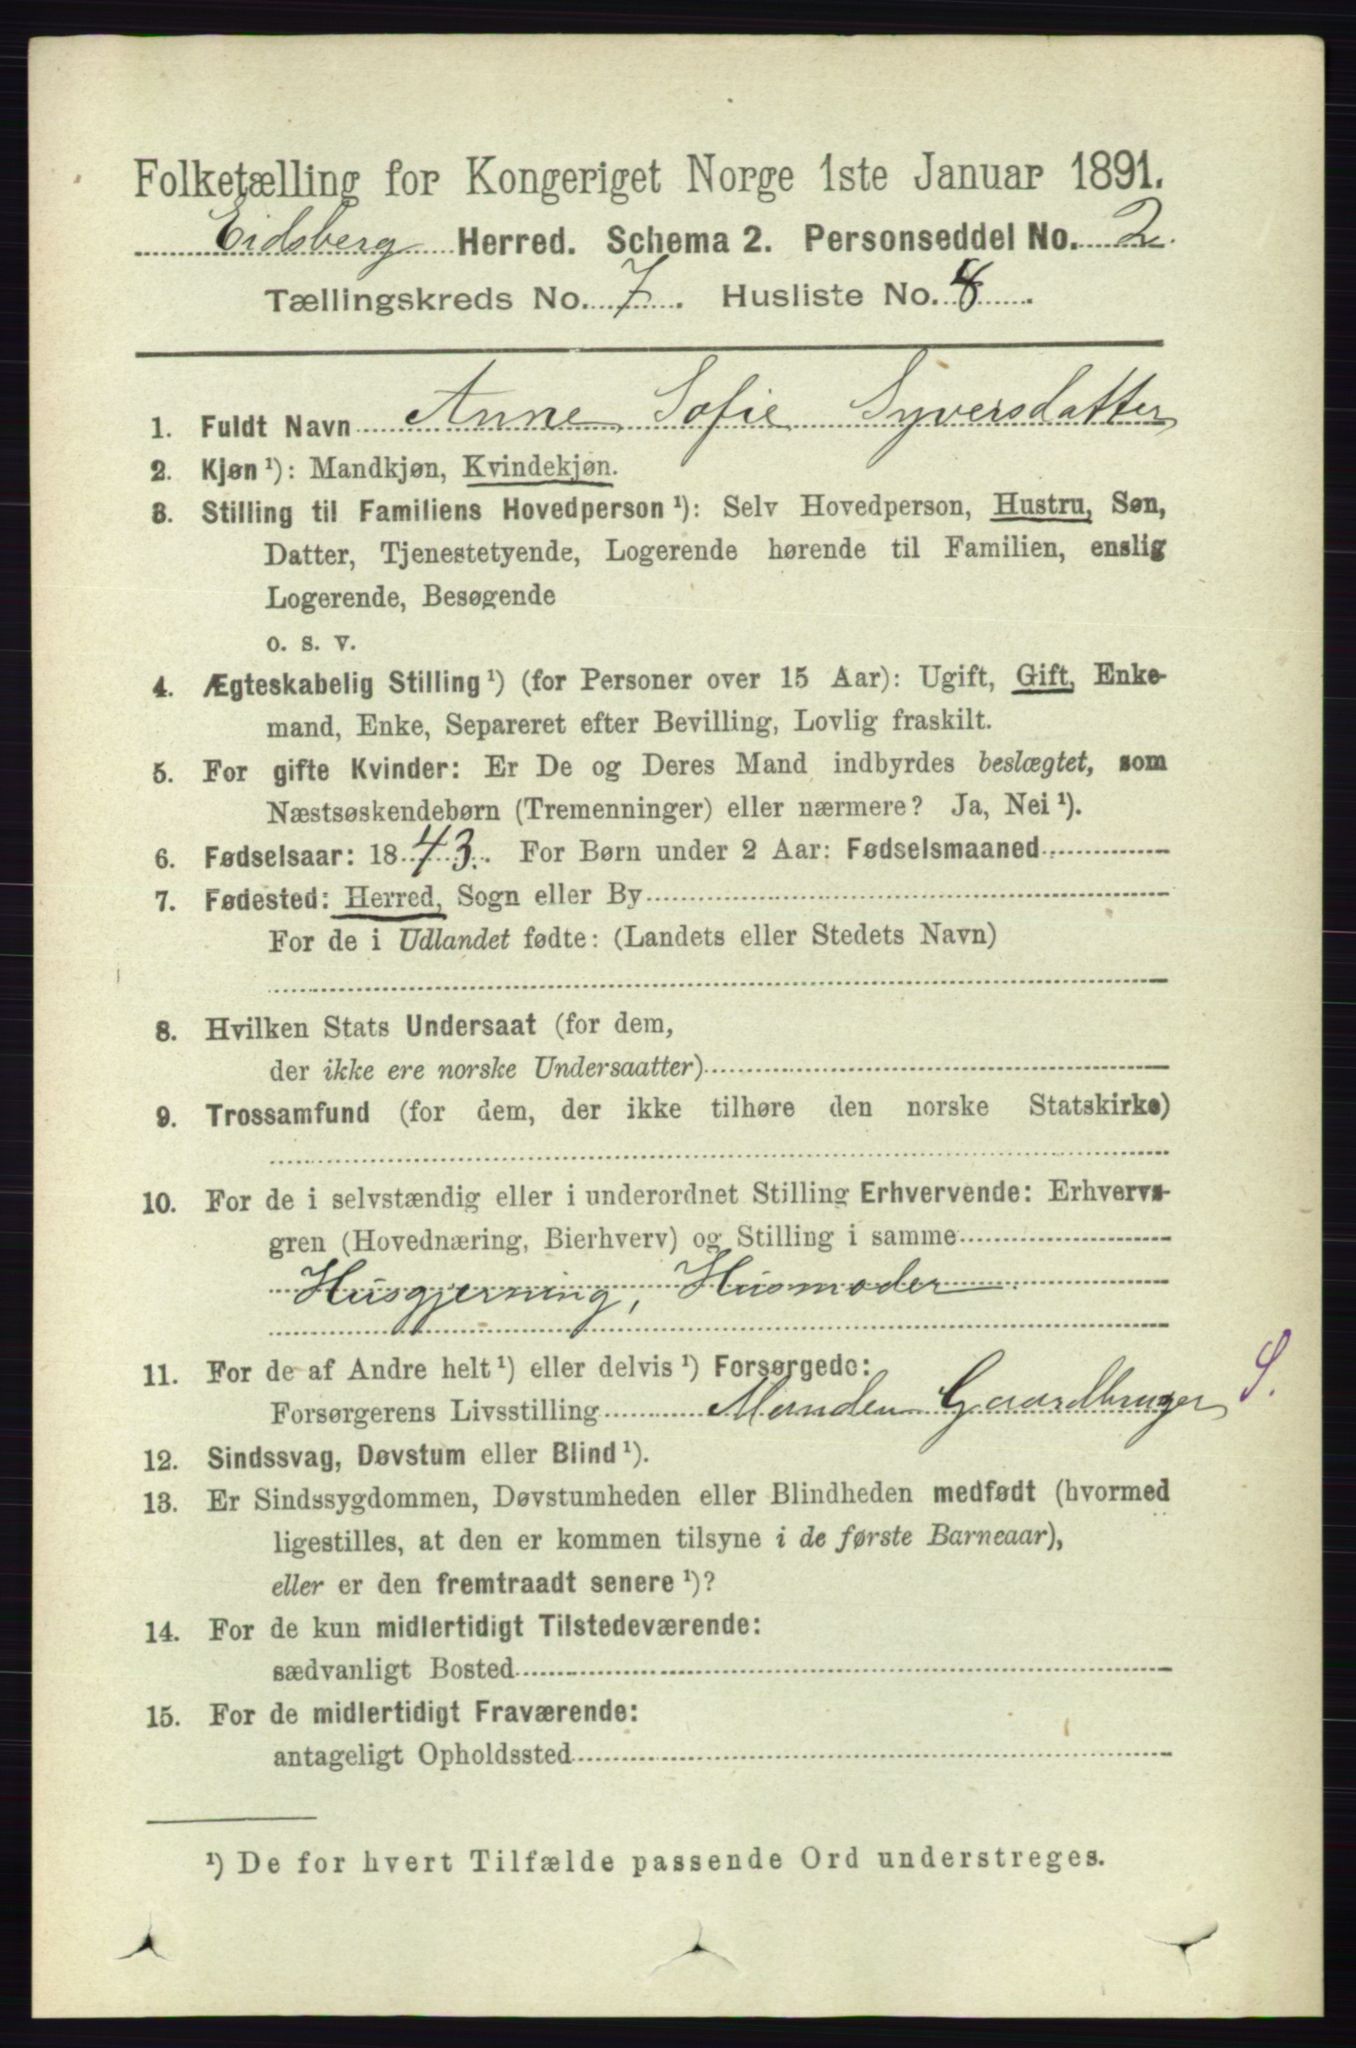 Folketælling for Kongeriget Norge 1ste Januar 1891.
Eidsberg Herred. Schema 2. Personseddel No. 2.
Tællingskreds No. 7. Husliste No. 8.
1. Fuldt Navn Anne Sofie Syversdatter
2. Kjøn ¹): Mandkjøn, Kvindekjøn.
3. Stilling til Familiens Hovedperson ¹): Selv Hovedperson, Hustru, Søn,
Datter, Tjenestetyende, Logerende hørende til Familien, enslig
Logerende, Besøgende
o. s. v.
4. Ægteskabelig Stilling ¹) (for Personer over 15 Aar): Ugift, Gift, Enke-
mand, Enke, Separeret efter Bevilling, Lovlig fraskilt.
5. For gifte Kvinder: Er De og Deres Mand indbyrdes beslægtet, som
Næstsøskendebørn (Tremenninger) eller nærmere? Ja, Nei ¹).
6. Fødselsaar: 1843. For Børn under 2 Aar: Fødselsmaaned
7. Fødested: Herred, Sogn eller By
For de i Udlandet fødte: (Landets eller Stedets Navn)
8. Hvilken Stats Undersaat (for dem,
der ikke ere norske Undersaatter)
9. Trossamfund (for dem, der ikke tilhøre den norske Statskirke)
10. For de i selvstændig eller i underordnet Stilling Erhvervende: Erhvervs-
gren (Hovednæring, Bierhverv) og Stilling i samme
Husgjerning, Husmoder
11. For de af Andre helt ¹) eller delvis ¹) Forsørgede:
Forsørgerens Livsstilling Manden Gaardbruger S.
12. Sindssvag, Døvstum eller Blind ¹).
13. Er Sindssygdommen, Døvstumheden eller Blindheden medfødt (hvormed
ligestilles, at den er kommen tilsyne i de første Barneaar),
eller er den fremtraadt senere ¹)?
14. For de kun midlertidigt Tilstedeværende:
sædvanligt Bosted
15. For de midlertidigt Fraværende:
antageligt Opholdssted
¹) De for hvert Tilfælde passende Ord understreges.